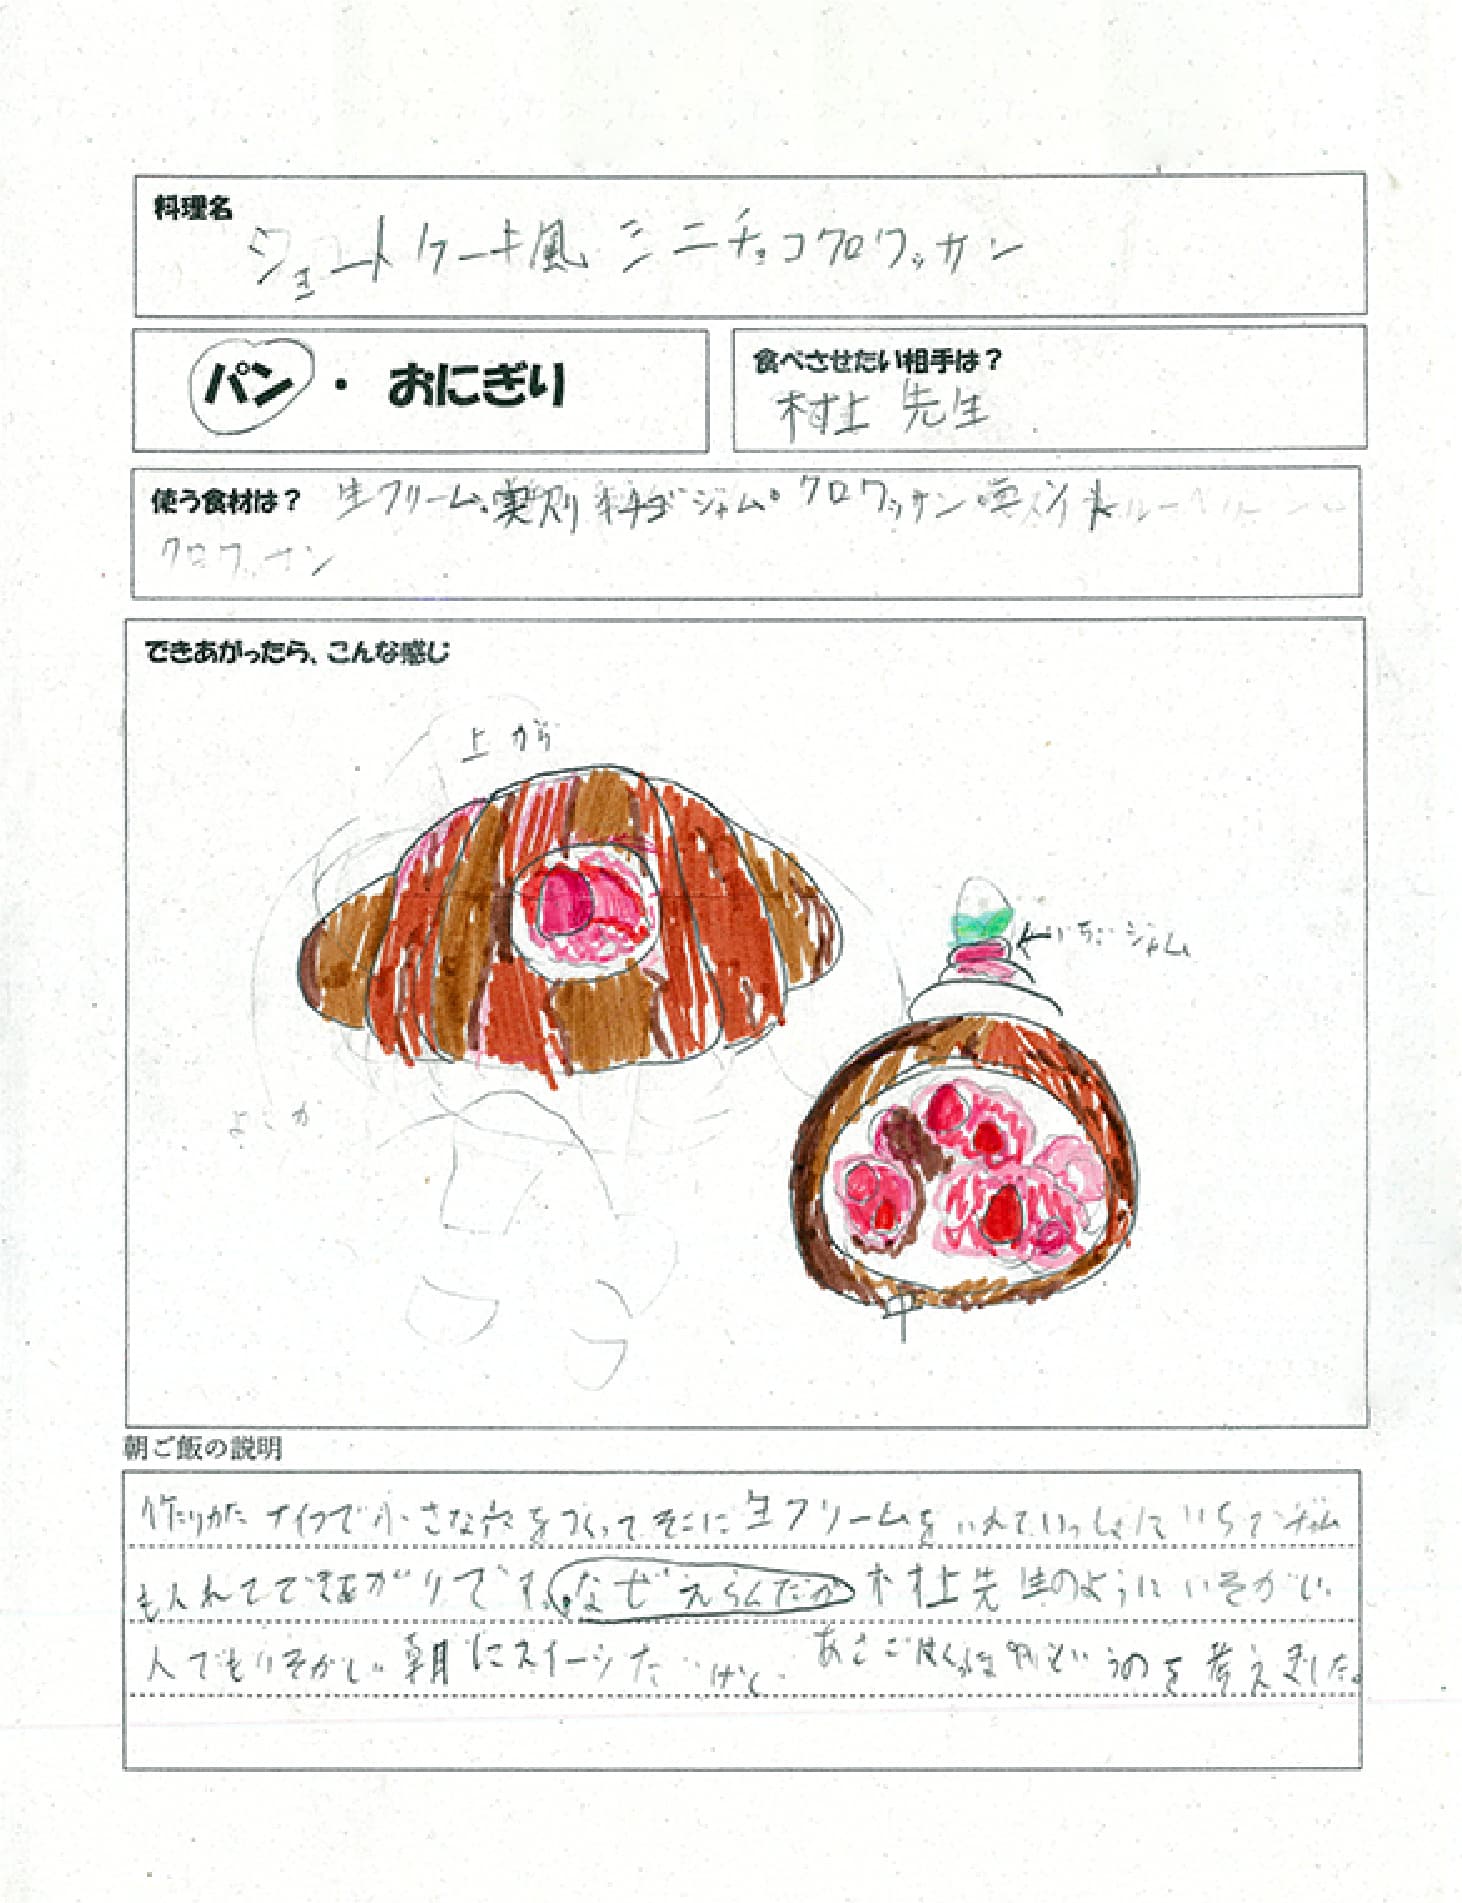 料理名
ショートケーキ風ミニチョコクロワッサン
パン・おにぎり
食べさせたい相手は?
村上先生
使う食材は? 生クリーム、 ジャム。クロワッサン
クロワッサン
できあがったら、こんな感じ
上から
いちごジャム
よこか
朝ご飯の説明
作りかた ナイフで小さな穴をつくってそこに生クリームをいれていっしょにいちごジャム
も入れてできあがりです。なぜえらんだか 村上先生のようにいそがしい
人でもいそがしい朝にスイーツ あさごはん というのを考えました。